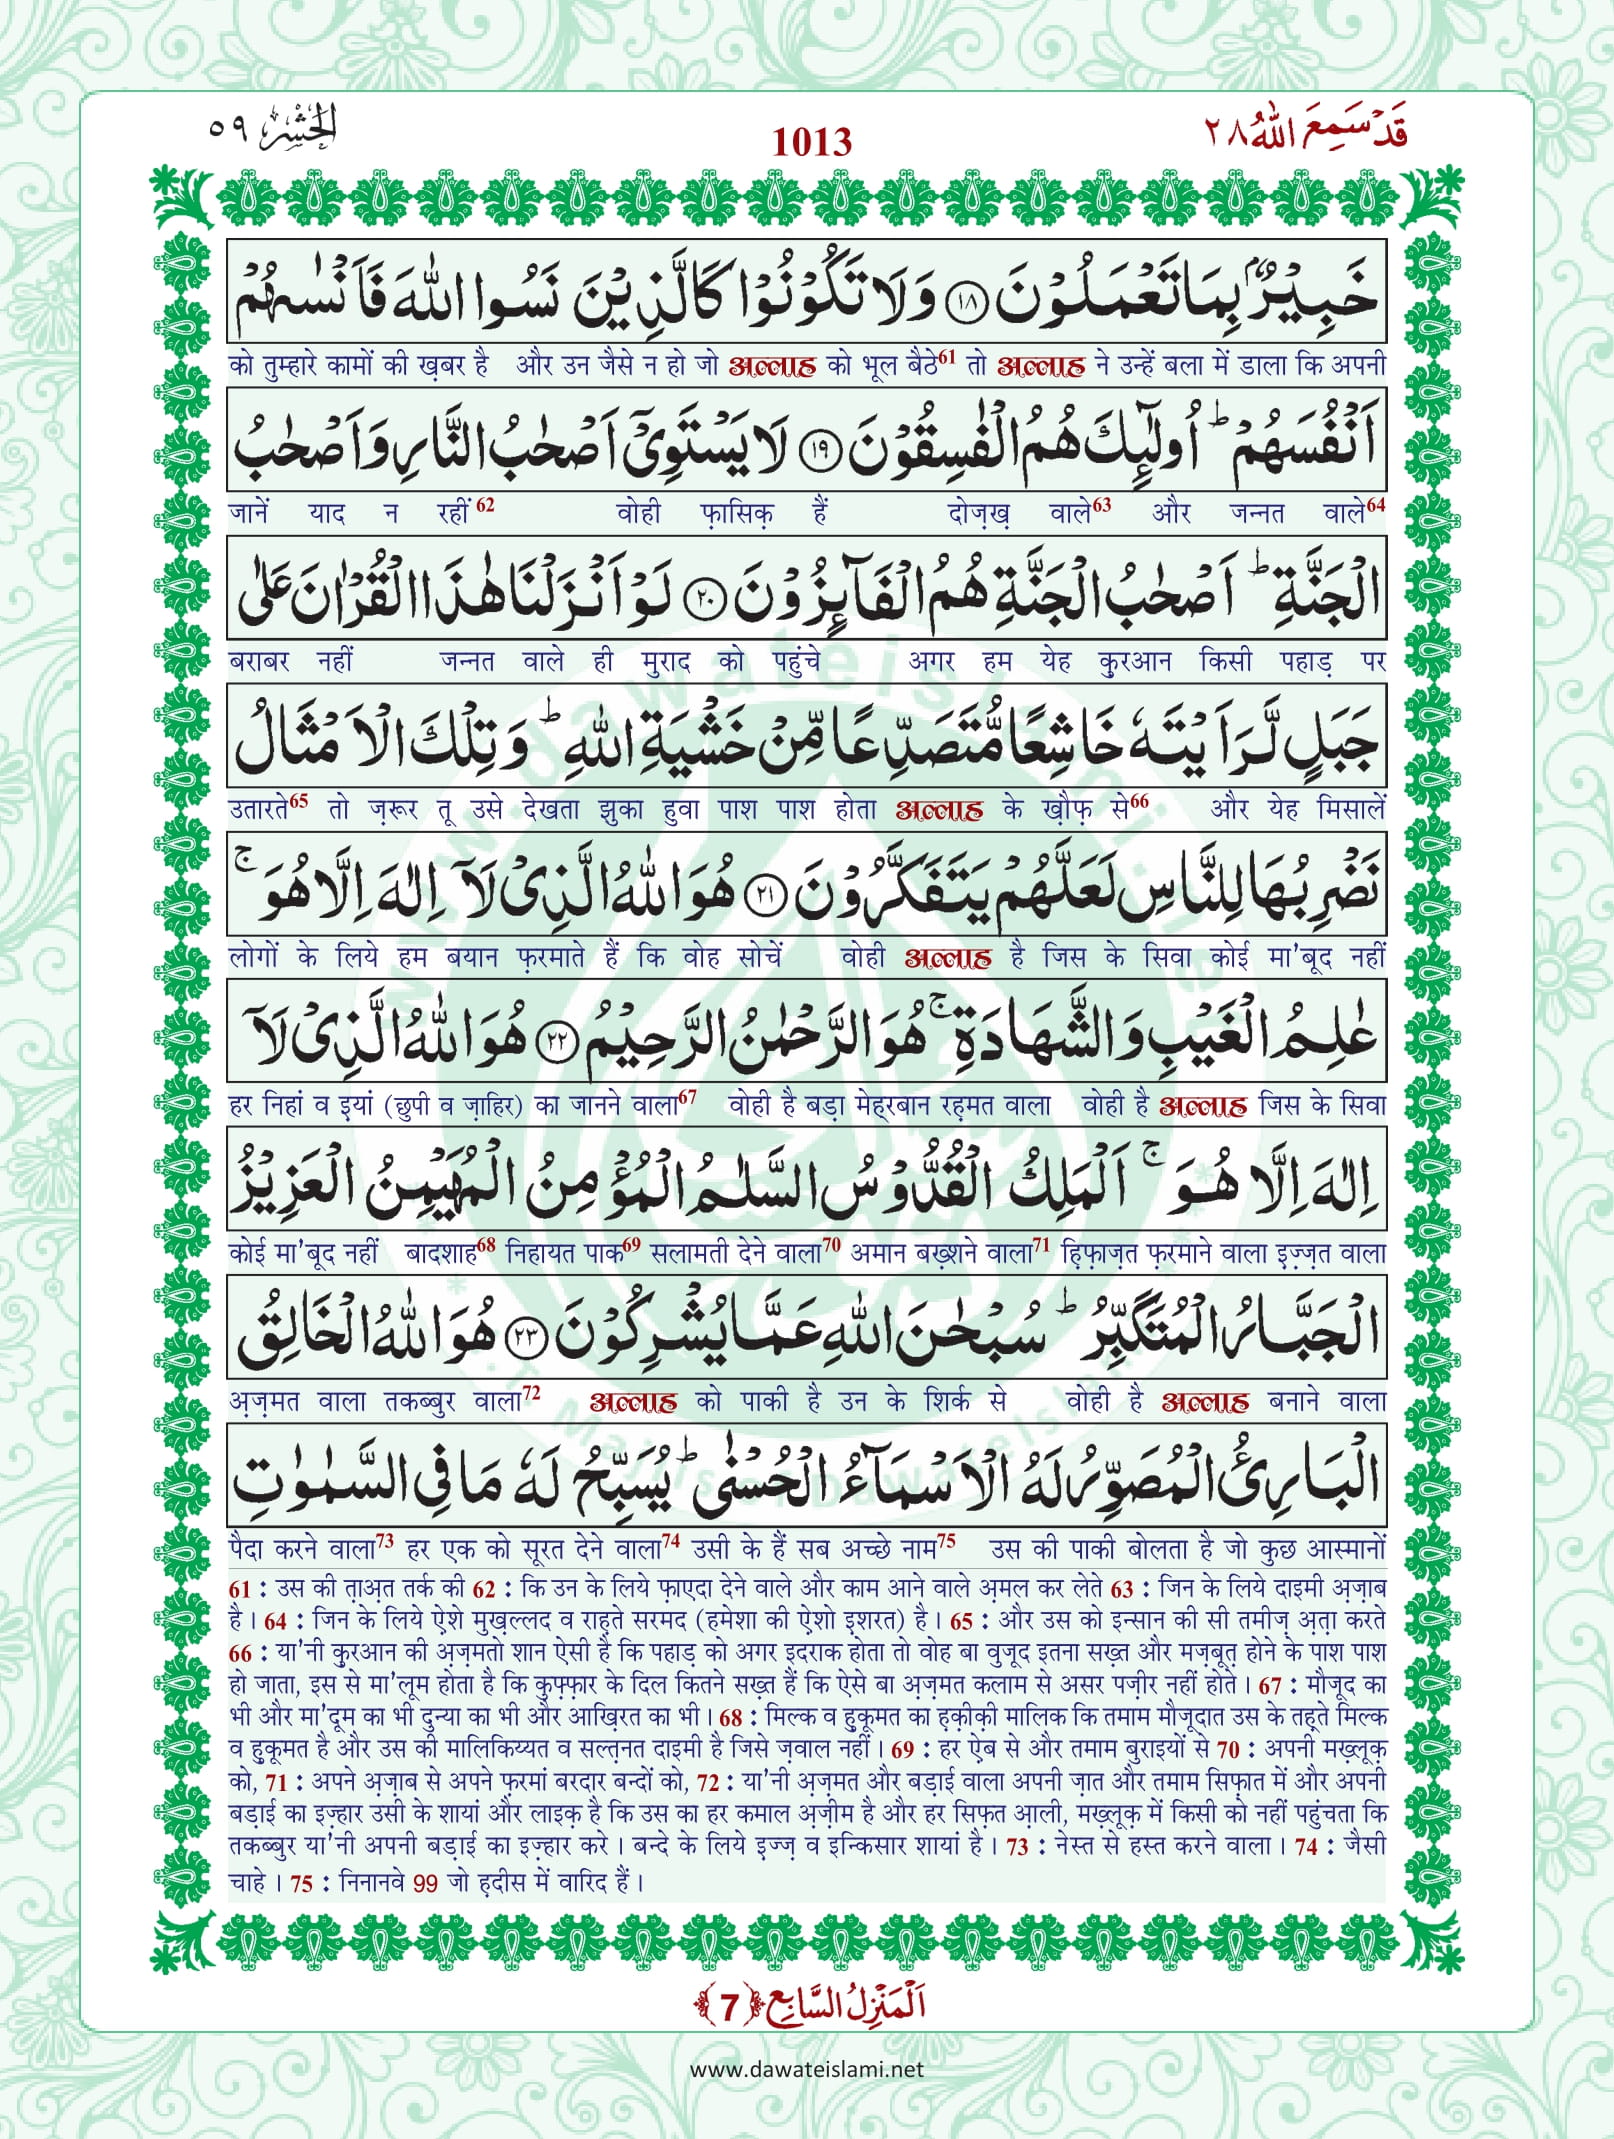 قَدۡ سَمِعَ اللّٰهُ ٢٨
1013
الۡحَشۡر ٥٩
خَبِيۡرٌۢ بِمَا تَعۡمَلُوۡنَ ﴿١٨﴾ وَلَا تَكُوۡنُوۡا كَالَّذِيۡنَ نَسُوا اللّٰهَ فَاَنۡسٰٮهُمۡ
को तुम्हारे कामों की ख़बर है और उन जैसे न हो जो अल्लाह को भूल बैठे61 तो अल्लाह ने उन्हें बला में डाला कि अपनी
اَنۡفُسَهُمۡ ؕ اُولٰٓئِكَ هُمُ الۡفٰسِقُوۡنَ ﴿١٩﴾ لَا يَسۡتَوِىۡۤ اَصۡحٰبُ النَّارِ وَاَصۡحٰبُ
जानें याद न रहीं62 वोही फ़ासिक़ हैं दोज़ख़ वाले63 और जन्नत वाले64
الۡجَنَّةِ ؕ اَصۡحٰبُ الۡجَنَّةِ هُمُ الۡفَآئِزُوۡنَ ﴿٢٠﴾ لَوۡ اَنۡزَلۡنَا هٰذَا الۡقُرۡاٰنَ عَلٰى
बराबर नहीं जन्नत वाले ही मुराद को पहुंचे अगर हम येह कुरआन किसी पहाड़ पर
جَبَلٍ لَّرَاَيۡتَهٗ خَاشِعًا مُّتَصَدِّعًا مِّنۡ خَشۡيَةِ اللّٰهِ ؕ وَتِلۡكَ الۡاَمۡثَالُ
उतारते65 तो ज़रूर तू उसे देखता झुका हुवा पाश पाश होता अल्लाह के ख़ौफ़ से66 और येह मिसालें
نَضۡرِبُهَا لِلنَّاسِ لَعَلَّهُمۡ يَتَفَكَّرُوۡنَ ﴿٢١﴾ هُوَ اللّٰهُ الَّذِىۡ لَاۤ اِلٰهَ اِلَّا هُوَ ۚ
लोगों के लिये हम बयान फ़रमाते हैं कि वोह सोचें वोही अल्लाह है जिस के सिवा कोई मा'बूद नहीं
عٰلِمُ الۡغَيۡبِ وَالشَّهَادَةِ ۚ هُوَ الرَّحۡمٰنُ الرَّحِيۡمُ ﴿٢٢﴾ هُوَ اللّٰهُ الَّذِىۡ لَاۤ
हर निहां व इयां (छुपी व ज़ाहिर) का जानने वाला67 वोही है बड़ा मेह्रबान रह़मत वाला वोही है अल्लाह जिस के सिवा
اِلٰهَ اِلَّا هُوَ ۚ اَلۡمَلِكُ الۡقُدُّوۡسُ السَّلٰمُ الۡمُؤۡمِنُ الۡمُهَيۡمِنُ الۡعَزِيۡزُ
कोई मा'बूद नहीं बादशाह68 निहायत पाक69 सलामती देने वाला70 अमान बख़्शने वाला71 ह़िफ़ाज़त फ़रमाने वाला इ़ज़्ज़त वाला
الۡجَبَّارُ الۡمُتَكَبِّرُ ؕ سُبۡحٰنَ اللّٰهِ عَمَّا يُشۡرِكُوۡنَ ﴿٢٣﴾ هُوَ اللّٰهُ الۡخَالِقُ
अ़ज़मत वाला तकब्बुर वाला72 अल्लाह को पाकी है उन के शिर्क से वोही है अल्लाह बनाने वाला
الۡبَارِئُ الۡمُصَوِّرُ لَهُ الۡاَسۡمَآءُ الۡحُسۡنٰى ؕ يُسَبِّحُ لَهٗ مَا فِى السَّمٰوٰتِ
पैदा करने वाला73 हर एक को सूरत देने वाला74 उसी के हैं सब अच्छे नाम75 उस की पाकी बोलता है जो कुछ आस्मानों
61 : उस की त़ाअ़त तर्क की 62 : कि उन के लिये फ़ाएदा देने वाले और काम आने वाले अ़मल कर लेते 63 : जिन के लिये दाइमी अ़ज़ाब
है। 64 : जिन के लिये ऐशे मुख़ल्लद व राह़ते सरमद (हमेशा की ऐशो इशरत) है। 65 : और उस को इन्सान की सी तमीज़ अ़त़ा करते
66 : या'नी कुरआन की अ़ज़मतो शान ऐसी है कि पहाड़ को अगर इदराक होता तो वोह बा वुजूद इतना सख़्त और मज़बूत़ होने के पाश पाश
हो जाता, इस से मा'लूम होता है कि कुफ़्फ़ार के दिल कितने सख़्त हैं कि ऐसे बा अ़ज़मत कलाम से असर पज़ीर नहीं होते। 67 : मौजूद का
भी और मा'दूम का भी दुन्या का भी और आख़िरत का भी। 68 : मिल्क व हुकूमत का ह़क़ीक़ी मालिक कि तमाम मौजूदात उस के तह़ते मिल्क
व हुकूमत है और उस की मालिकिय्यत व सल्त़नत दाइमी है जिसे ज़वाल नहीं। 69 : हर ऐब से और तमाम बुराइयों से 70 : अपनी मख़्लूक़
को, 71 : अपने अ़ज़ाब से अपने फ़रमां बरदार बन्दों को, 72 : या'नी अ़ज़मत और बड़ाई वाला अपनी ज़ात और तमाम सिफ़ात में और अपनी
बड़ाई का इज़्हार उसी के शायां और लाइक़ है कि उस का हर कमाल अ़ज़ीम है और हर सिफ़त आ़ली, मख़्लूक़ में किसी को नहीं पहुंचता कि
तकब्बुर या'नी अपनी बड़ाई का इज़्हार करे। बन्दे के लिये इज्ज़ व इन्किसार शायां है। 73 : नेस्त से हस्त करने वाला। 74 : जैसी
चाहे। 75 : निनानवे 99 जो ह़दीस में वारिद हैं।
اَلۡمَنۡزِلُ السَّابِع ﴿7﴾
www.dawateislami.net